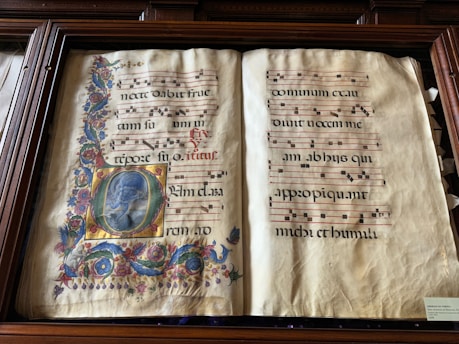 nocte dabit fruc
tum su um in
tépore su o.
Dum clama
rem ad
dominum exau
diuit uocem me
am ab hys qui
appropiquant
michi et humili